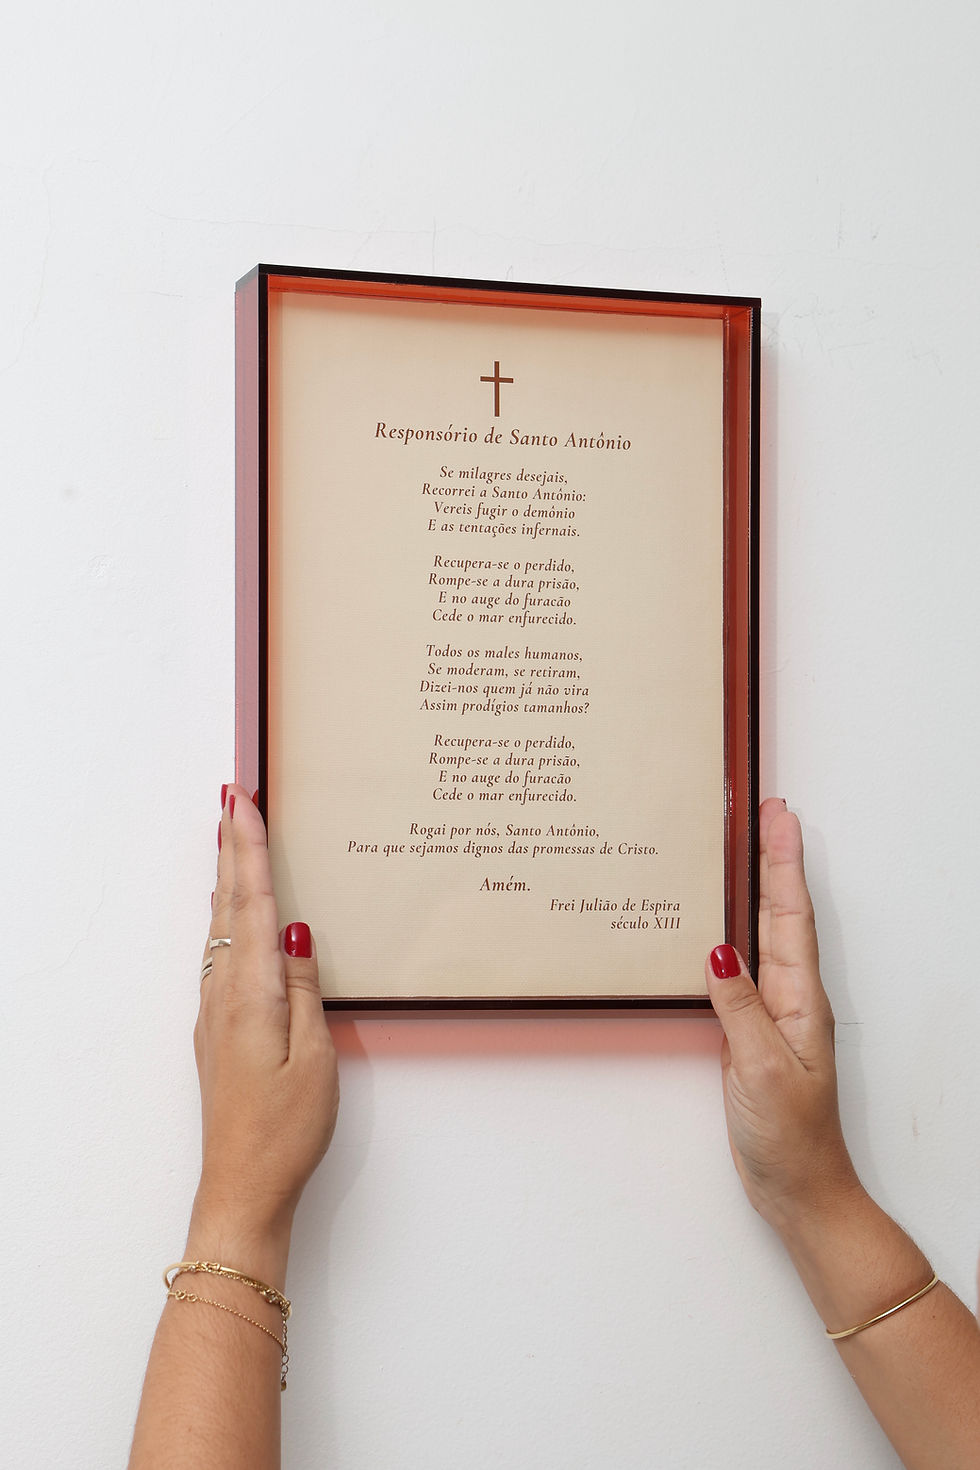 Responsório de Santo Antônio
Se milagres desejais,
Recorrei a Santo Antônio:
Vereis fugir o demônio
E as tentações infernais.
Recupera-se o perdido,
Rompe-se a dura prisão,
E no auge do furacão
Cede o mar enfurecido.
Todos os males humanos,
Se moderam, se retiram,
Dizei-nos quem já não vira
Assim prodígios tamanhos?
Recupera-se o perdido,
Rompe-se a dura prisão,
E no auge do furacão
Cede o mar enfurecido.
Rogai por nós, Santo Antônio,
Para que sejamos dignos das promessas de Cristo.
Amém.
Frei Julião de Espira
século XIII